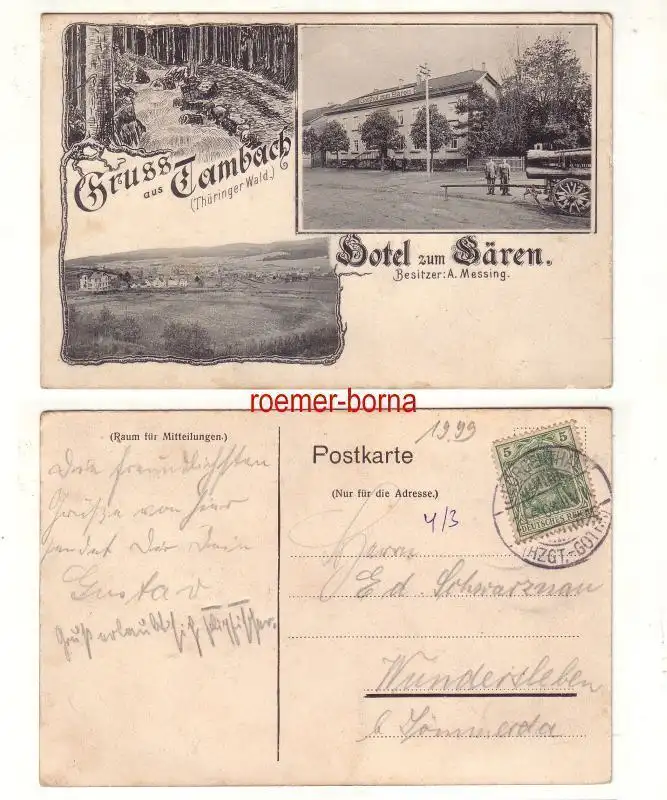 Gruss
aus Tambach
(Thüringer Wald.)
Gasthof zum Bären
Hotel zum Bären.
Besitzer: A. Messing.
roemer-borna
(Raum für Mitteilungen.)
Die freundlichsten
Grüße von hier
sendet Dir Dein
Gustav
Gruß erlaubt sich
Postkarte
(Nur für die Adresse.)
19,99
4/3
5
DEUTSCHES REICH
(HZGT.-GOTHA)
Herrn
Ed. Schwarznau
Wundersleben
b. Sömmerda